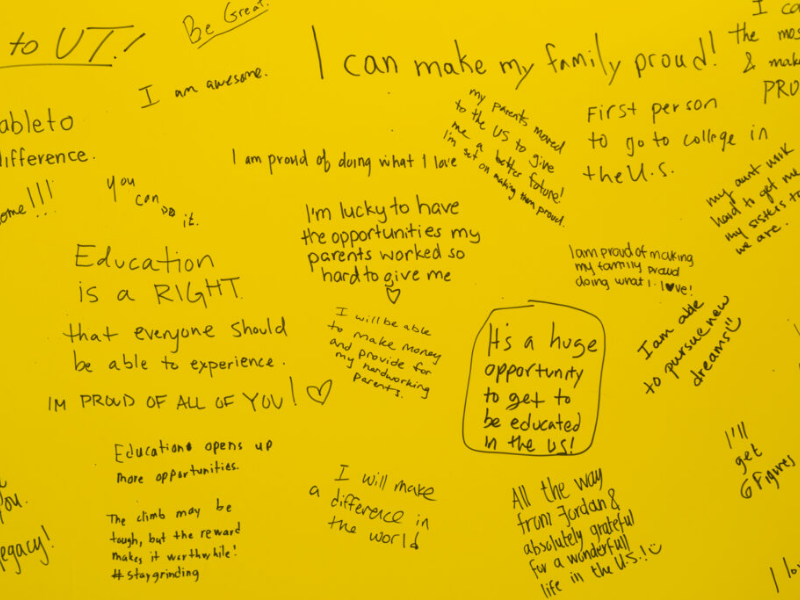 to UT!
Be Great.
I am awesome.
I can make my family proud!
I ca
the mos
& mak
PRO
able to
ifference.
ome!!!
you
can do
it.
I am proud of doing what I love
my parents moved
to the US to give
me a better future!
I'm set on making them proud.
First person
to go to college in
the U.S.
my aunt work
hard to get me
my sisters to
we are.
I'm lucky to have
the opportunities my
parents worked so
hard to give me
I am proud of making
my family proud
doing what I love!
Education
is a RIGHT
that everyone should
be able to experience.
IM PROUD OF ALL OF YOU!
I will be able
to make money
and provide for
my hardworking
parents.
It's a huge
opportunity
to get to
be educated
in the US!
I am able
to pursue new
dreams
Education opens up
more opportunities.
I will make
a difference in
the world
I'll
get
6 Figures
The climb may be
tough, but the reward
makes it worthwhile!
#staygrinding
All the way
from Jordan &
absolutely grateful
for a wonderfull
life in the U.S.!
you.
egacy!
I lo